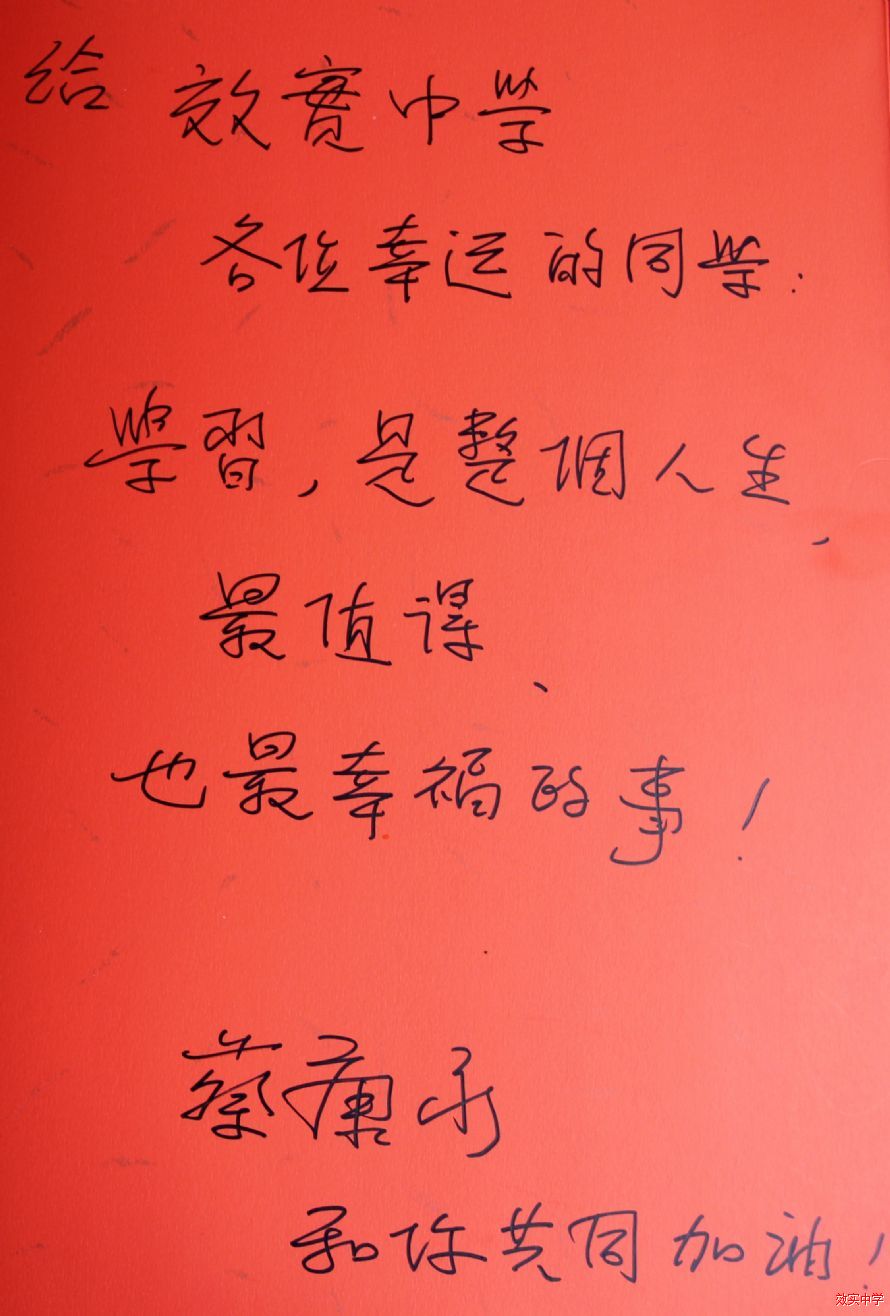 给 效實中学
各位幸运的同学.
學習,是整個人生、
最值得、
也最幸福的事!
蔡康永
和你共同加油!
效实中学